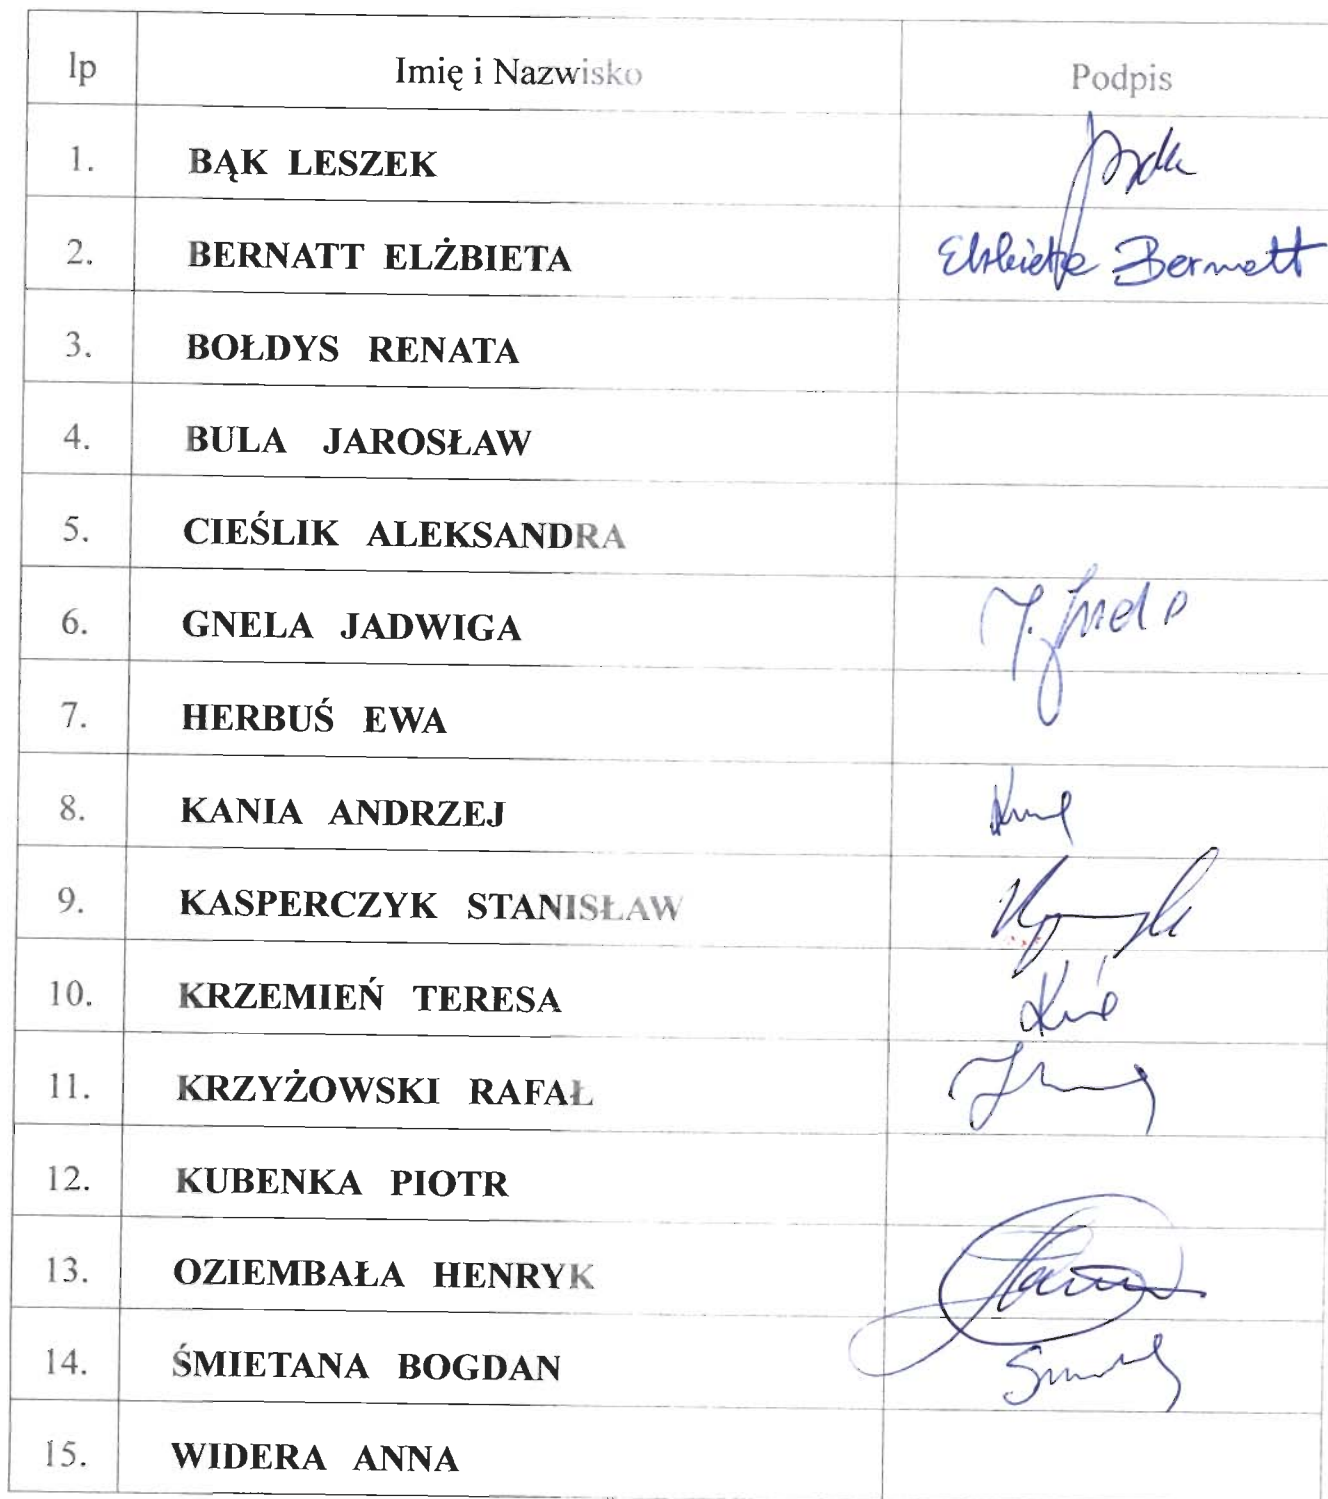 lp Imię i Nazwisko Podpis
1. BĄK LESZEK
2. BERNATT ELŻBIETA Elżbieta Bernatt
3. BOŁDYS RENATA
4. BULA JAROSŁAW
5. CIEŚLIK ALEKSANDRA
6. GNELA JADWIGA J. Gnela
7. HERBUŚ EWA
8. KANIA ANDRZEJ
9. KASPERCZYK STANISŁAW
10. KRZEMIEŃ TERESA
11. KRZYŻOWSKI RAFAŁ
12. KUBENKA PIOTR
13. OZIEMBAŁA HENRYK
14. ŚMIETANA BOGDAN
15. WIDERA ANNA